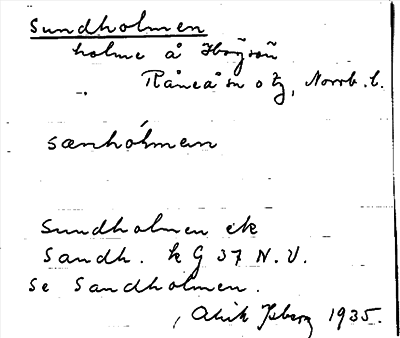 Sundholmen
holme å
Råneå sn o tg, Norrb. l.
sænhólmen
Sundholmen ek
Sandh. k G 37 N.V.
se Sandholmen.
Alrik Ysberg 1935.